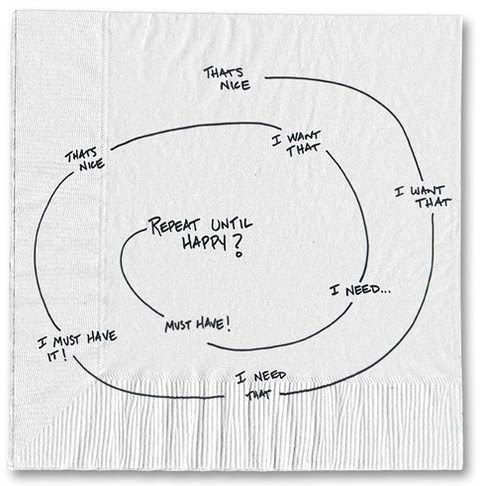 THATS
NICE
I WANT
THAT
I NEED
THAT
I MUST HAVE
IT!
THATS
NICE
I WANT
THAT
I NEED...
MUST HAVE!
REPEAT UNTIL
HAPPY?